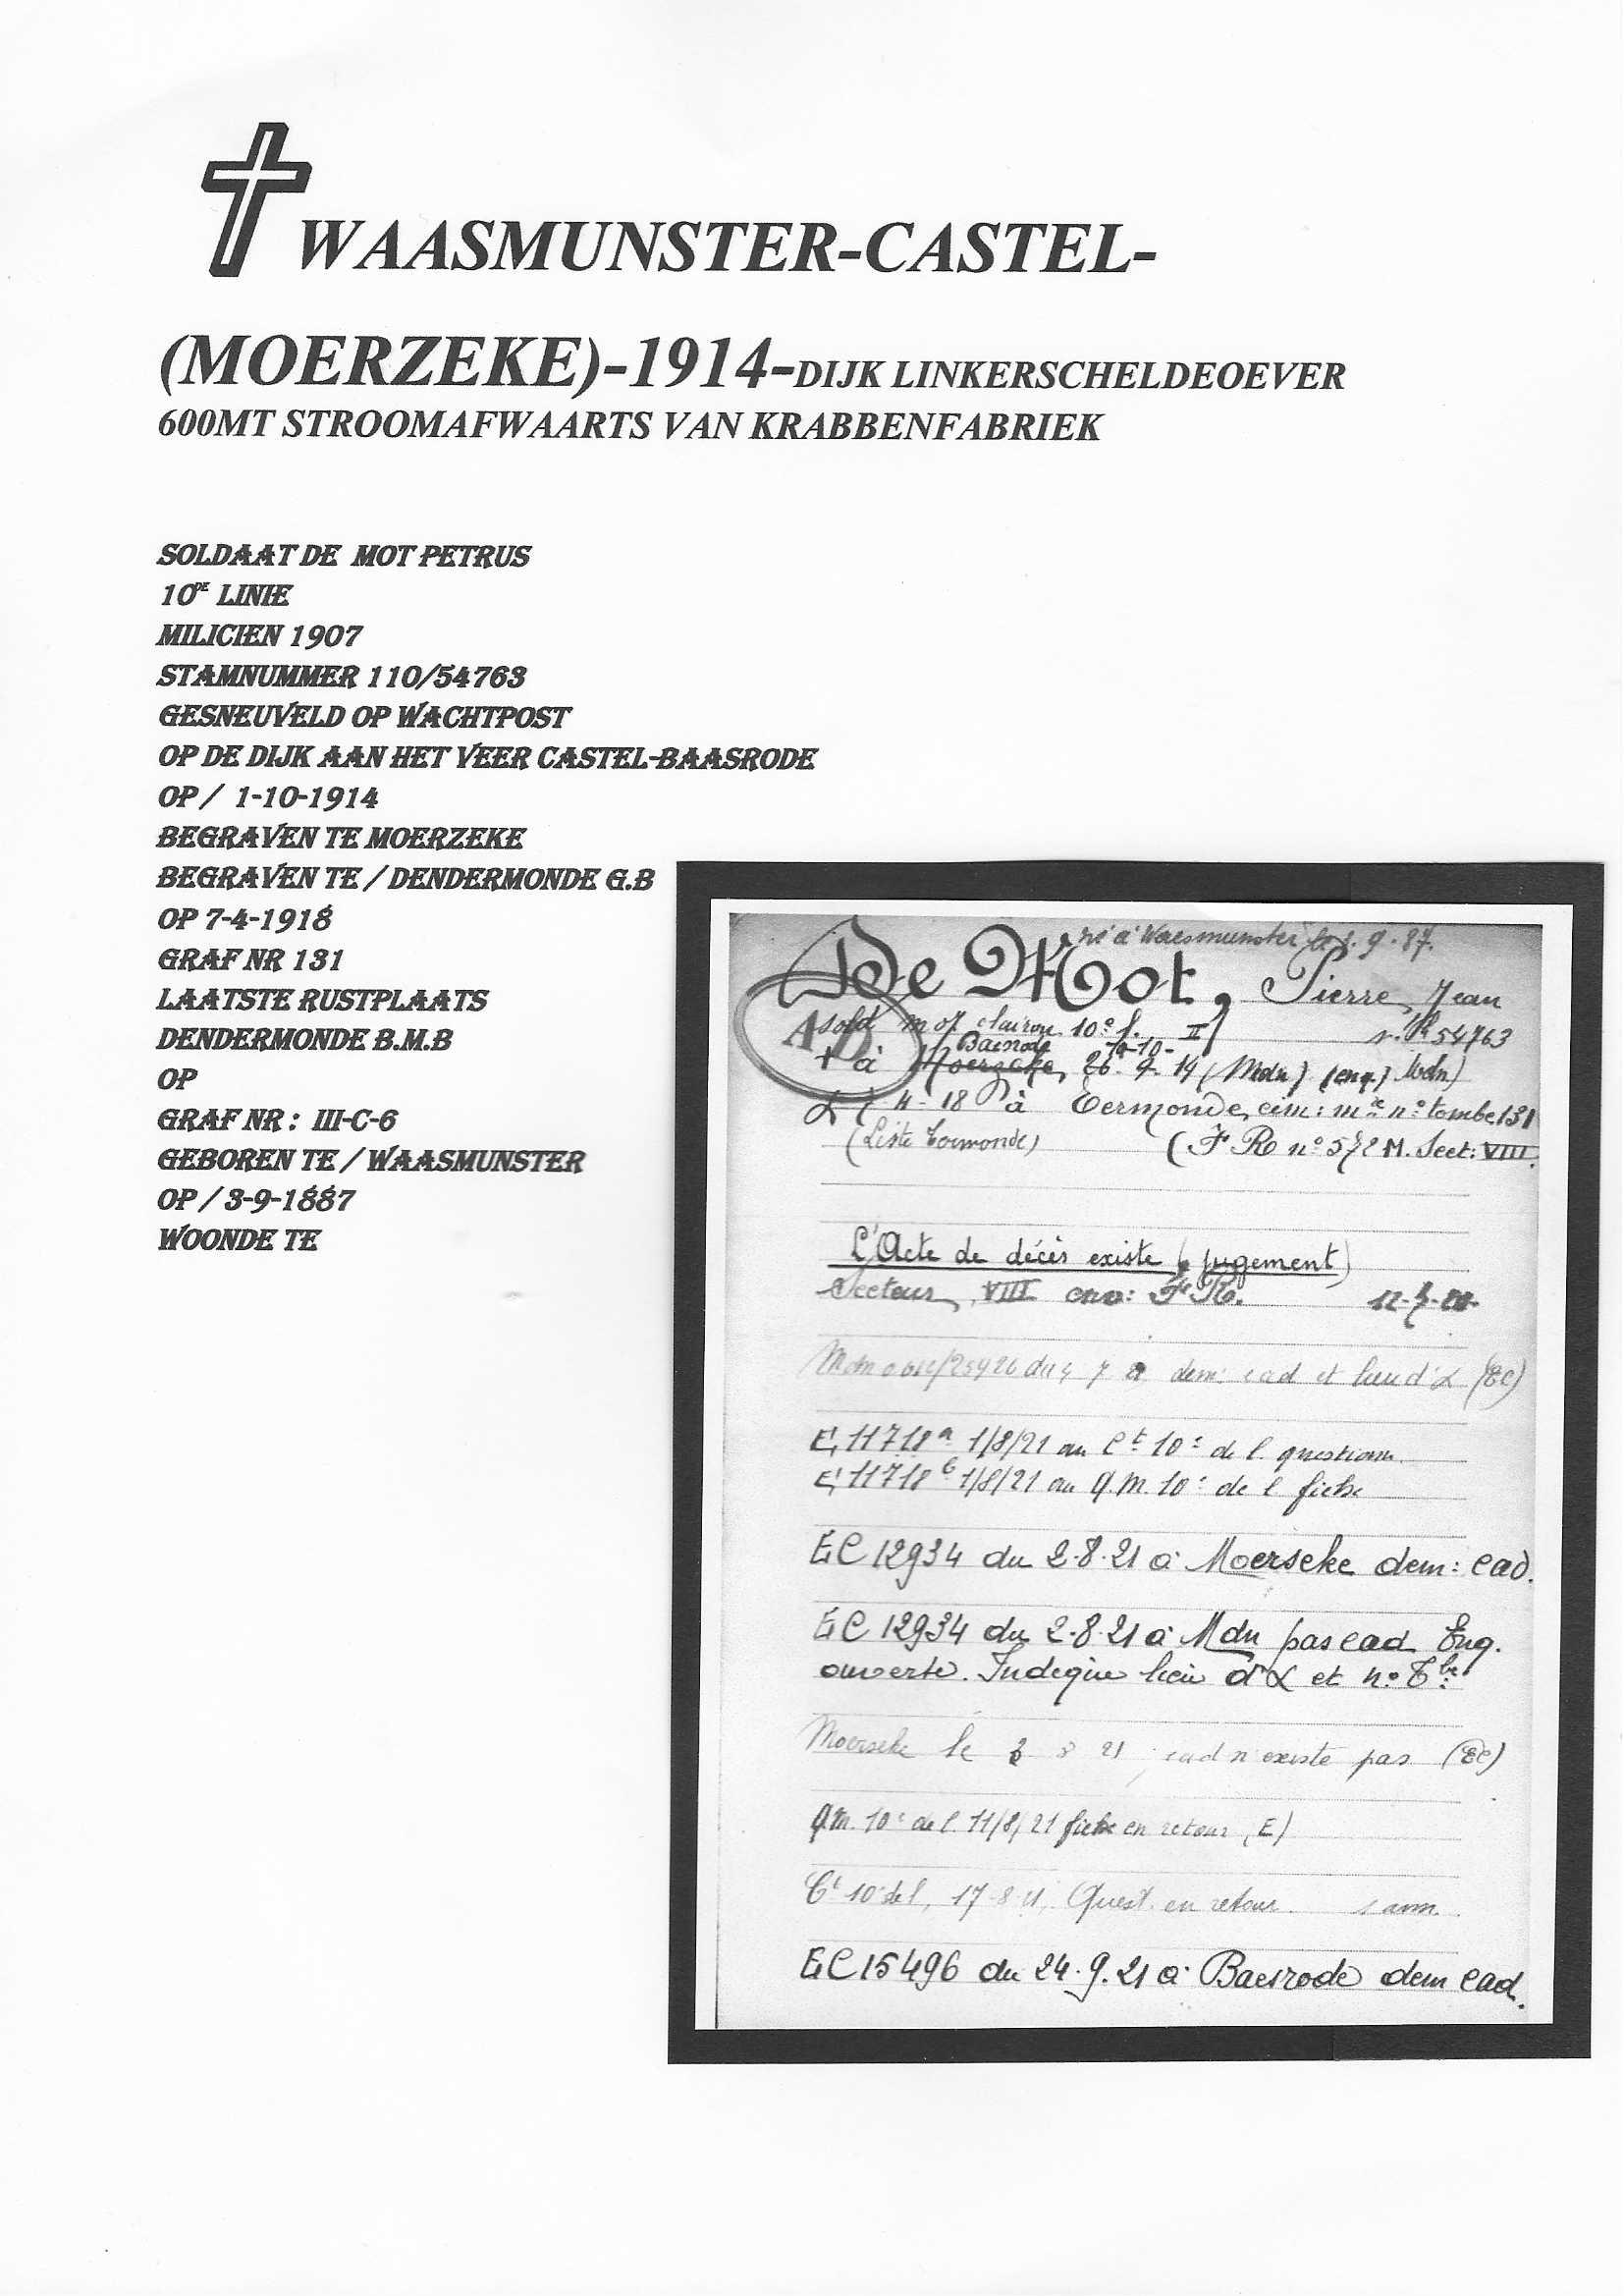 WAASMUNSTER-CASTEL-
(MOERZEKE)-1914-DIJK LINKERSCHELDEOEVER
600MT STROOMAFWAARTS VAN KRABBENFABRIEK
SOLDAAT DE MOT PETRUS
10DE LINIE
MILICIEN 1907
STAMNUMMER 110/54763
GESNEUVELD OP WACHTPOST
OP DE DIJK AAN HET VEER CASTEL-BAASRODE
OP / 1-10-1914
BEGRAVEN TE MOERZEKE
BEGRAVEN TE / DENDERMONDE G.B
OP 7-4-1918
GRAF NR 131
LAATSTE RUSTPLAATS
DENDERMONDE B.M.B
OP
GRAF NR : III-C-6
GEBOREN TE / WAASMUNSTER
OP / 3-9-1887
WOONDE TE
né à Waesmunster le 3.9.87.
De Mot, Pierre, Jean
AB
sold mof clairon 10e l. II n. 54763
Baesrode 10-
+ à Moerzeke, 26. 9. 14 (Mdn) (enq. Mdn)
7-4-18 à Termonde, cim: mre no tombe 131
(Liste Termonde) (F R no 572 M. Sect: VIII.
L'Acte de décès existe (jugement)
Secteur VIII F.R.
dem: cad et lieu d' (EC)
E, 11718a 1/8/21 au Ct 10e de l. questionn.
E, 11718b 1/8/21 au Q.M. 10e de l fiche
EC 12934 du 2.8.21 à Moerseke dem: cad.
EC 12934 du 2.8.21 à Mdn pas cad Enq.
ouverte. Indique lieu d' et no Tbe:
Moerseke le 8 21 cad n'existe pas (EC)
Q.M. 10e de l. 11/8/21 fiche en retour (E)
Ct 10 de l, 17-8-21, Quest. en retour 1 ann.
EC 15496 du 24.9.21 à Baesrode dem cad.